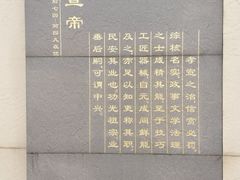 孝宣之治信赏必罚
综核名实政事文学法理
之士咸精其能至于技巧
工匠器械自元成间鲜能
及之亦足以知吏称其职
民安其业也功光祖宗业
垂后嗣可谓中兴
宣帝
前七四—前四九在位